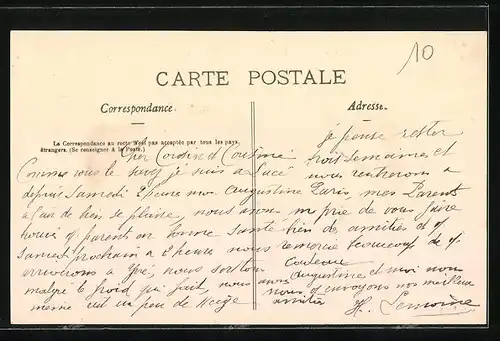 10
CARTE POSTALE
Correspondance.
Adresse.
La Correspondance au recto n'est pas acceptée par tous les pays
étrangers. (Se renseigner à la Poste.)
Cher Cousin et Cousine
Comme vous le savez je suis a Lucé
depuis Samedi 2 heure mon Augustine
a l'air de bien se plaire, nous avons
trouvé parent en bonne Santé
Samedi prochain a 2 heure nous
arriverons a nous sortons
malgré le froid qui fait, nous avons
meme eut un peu de Neige
je pense rester
trois Semaines et
nous rentrerons a
Paris, mes Parent
me prie de vous faire
bien de amitiés et
remercie beaucoup de
Couleuvre
Augustine et moi nous
nous envoyons nos meilleur
amitiés
H. Lemoine